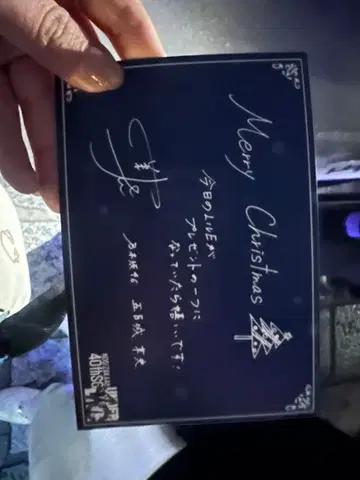 Merry Christmas
今日のLIVEが
プレゼントの一つに
なっていたら嬉しいです!
乃木坂46 五百城 茉央
40thSG